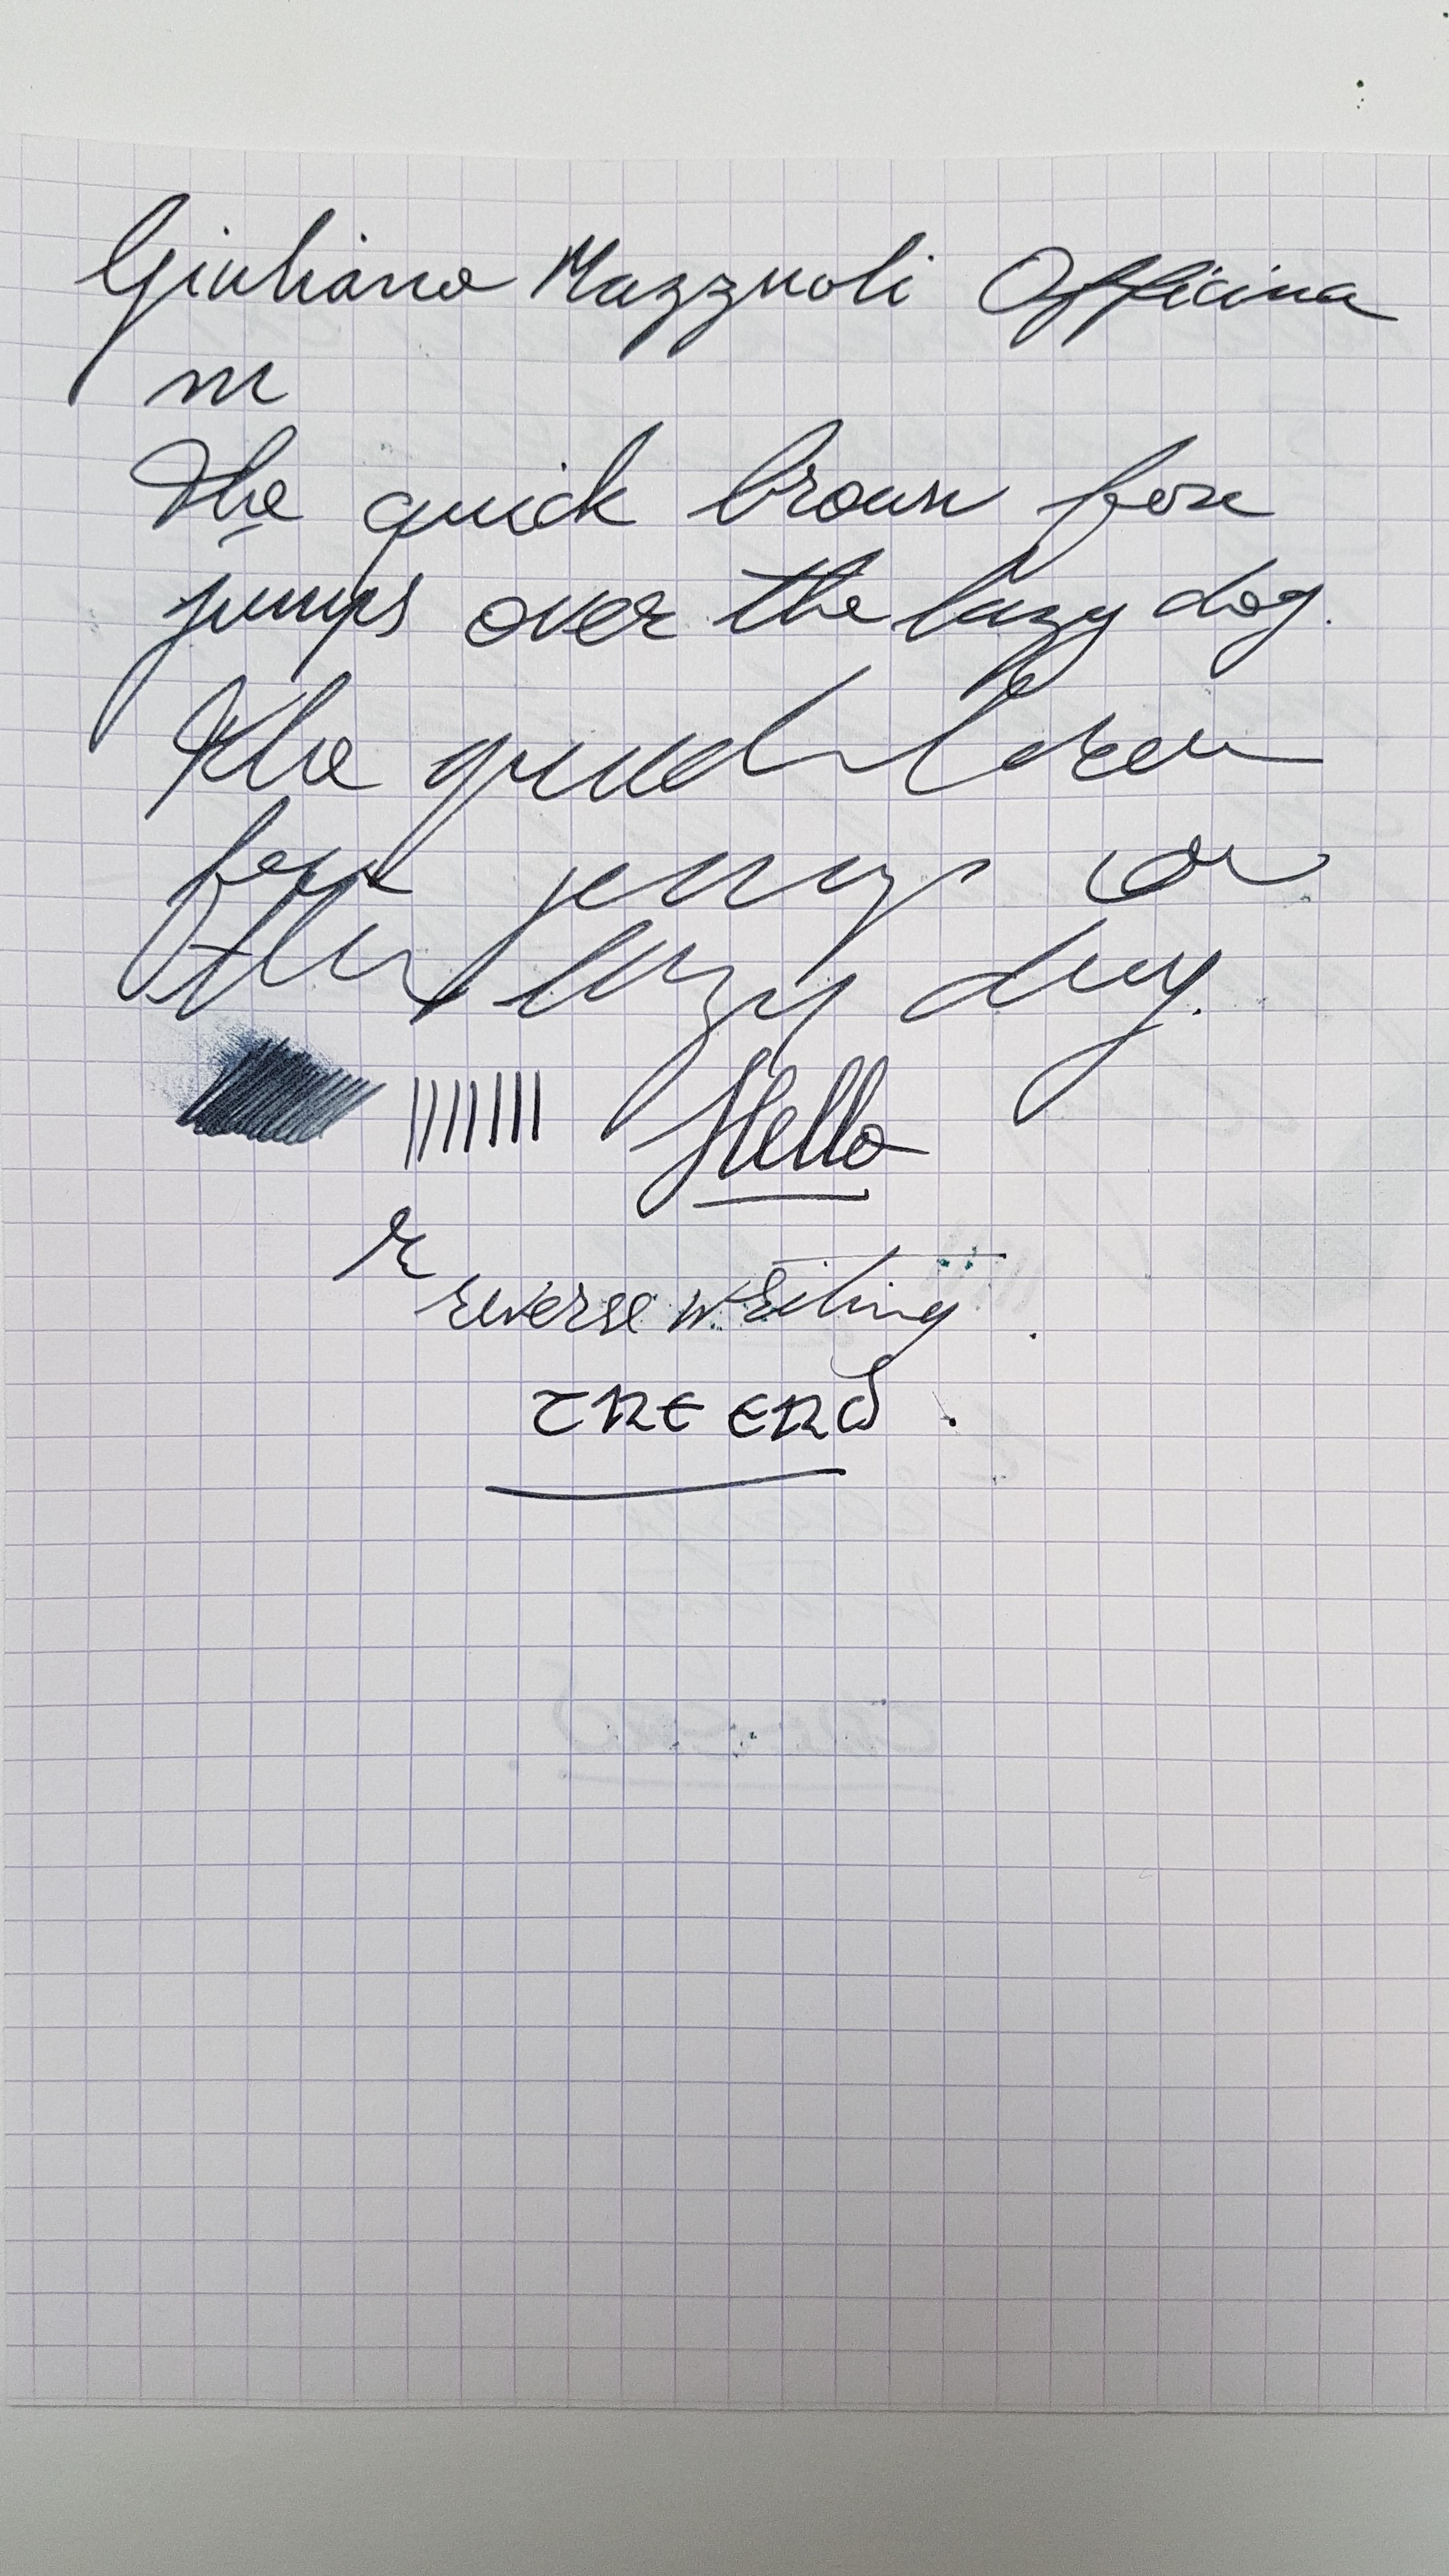 Giuliano Mazzuoli Officina
M
The quick brown fox
jumps over the lazy dog.
The quick brown
fox jumps over
the lazy dog.
Hello
R
reverse writing.
THE END.